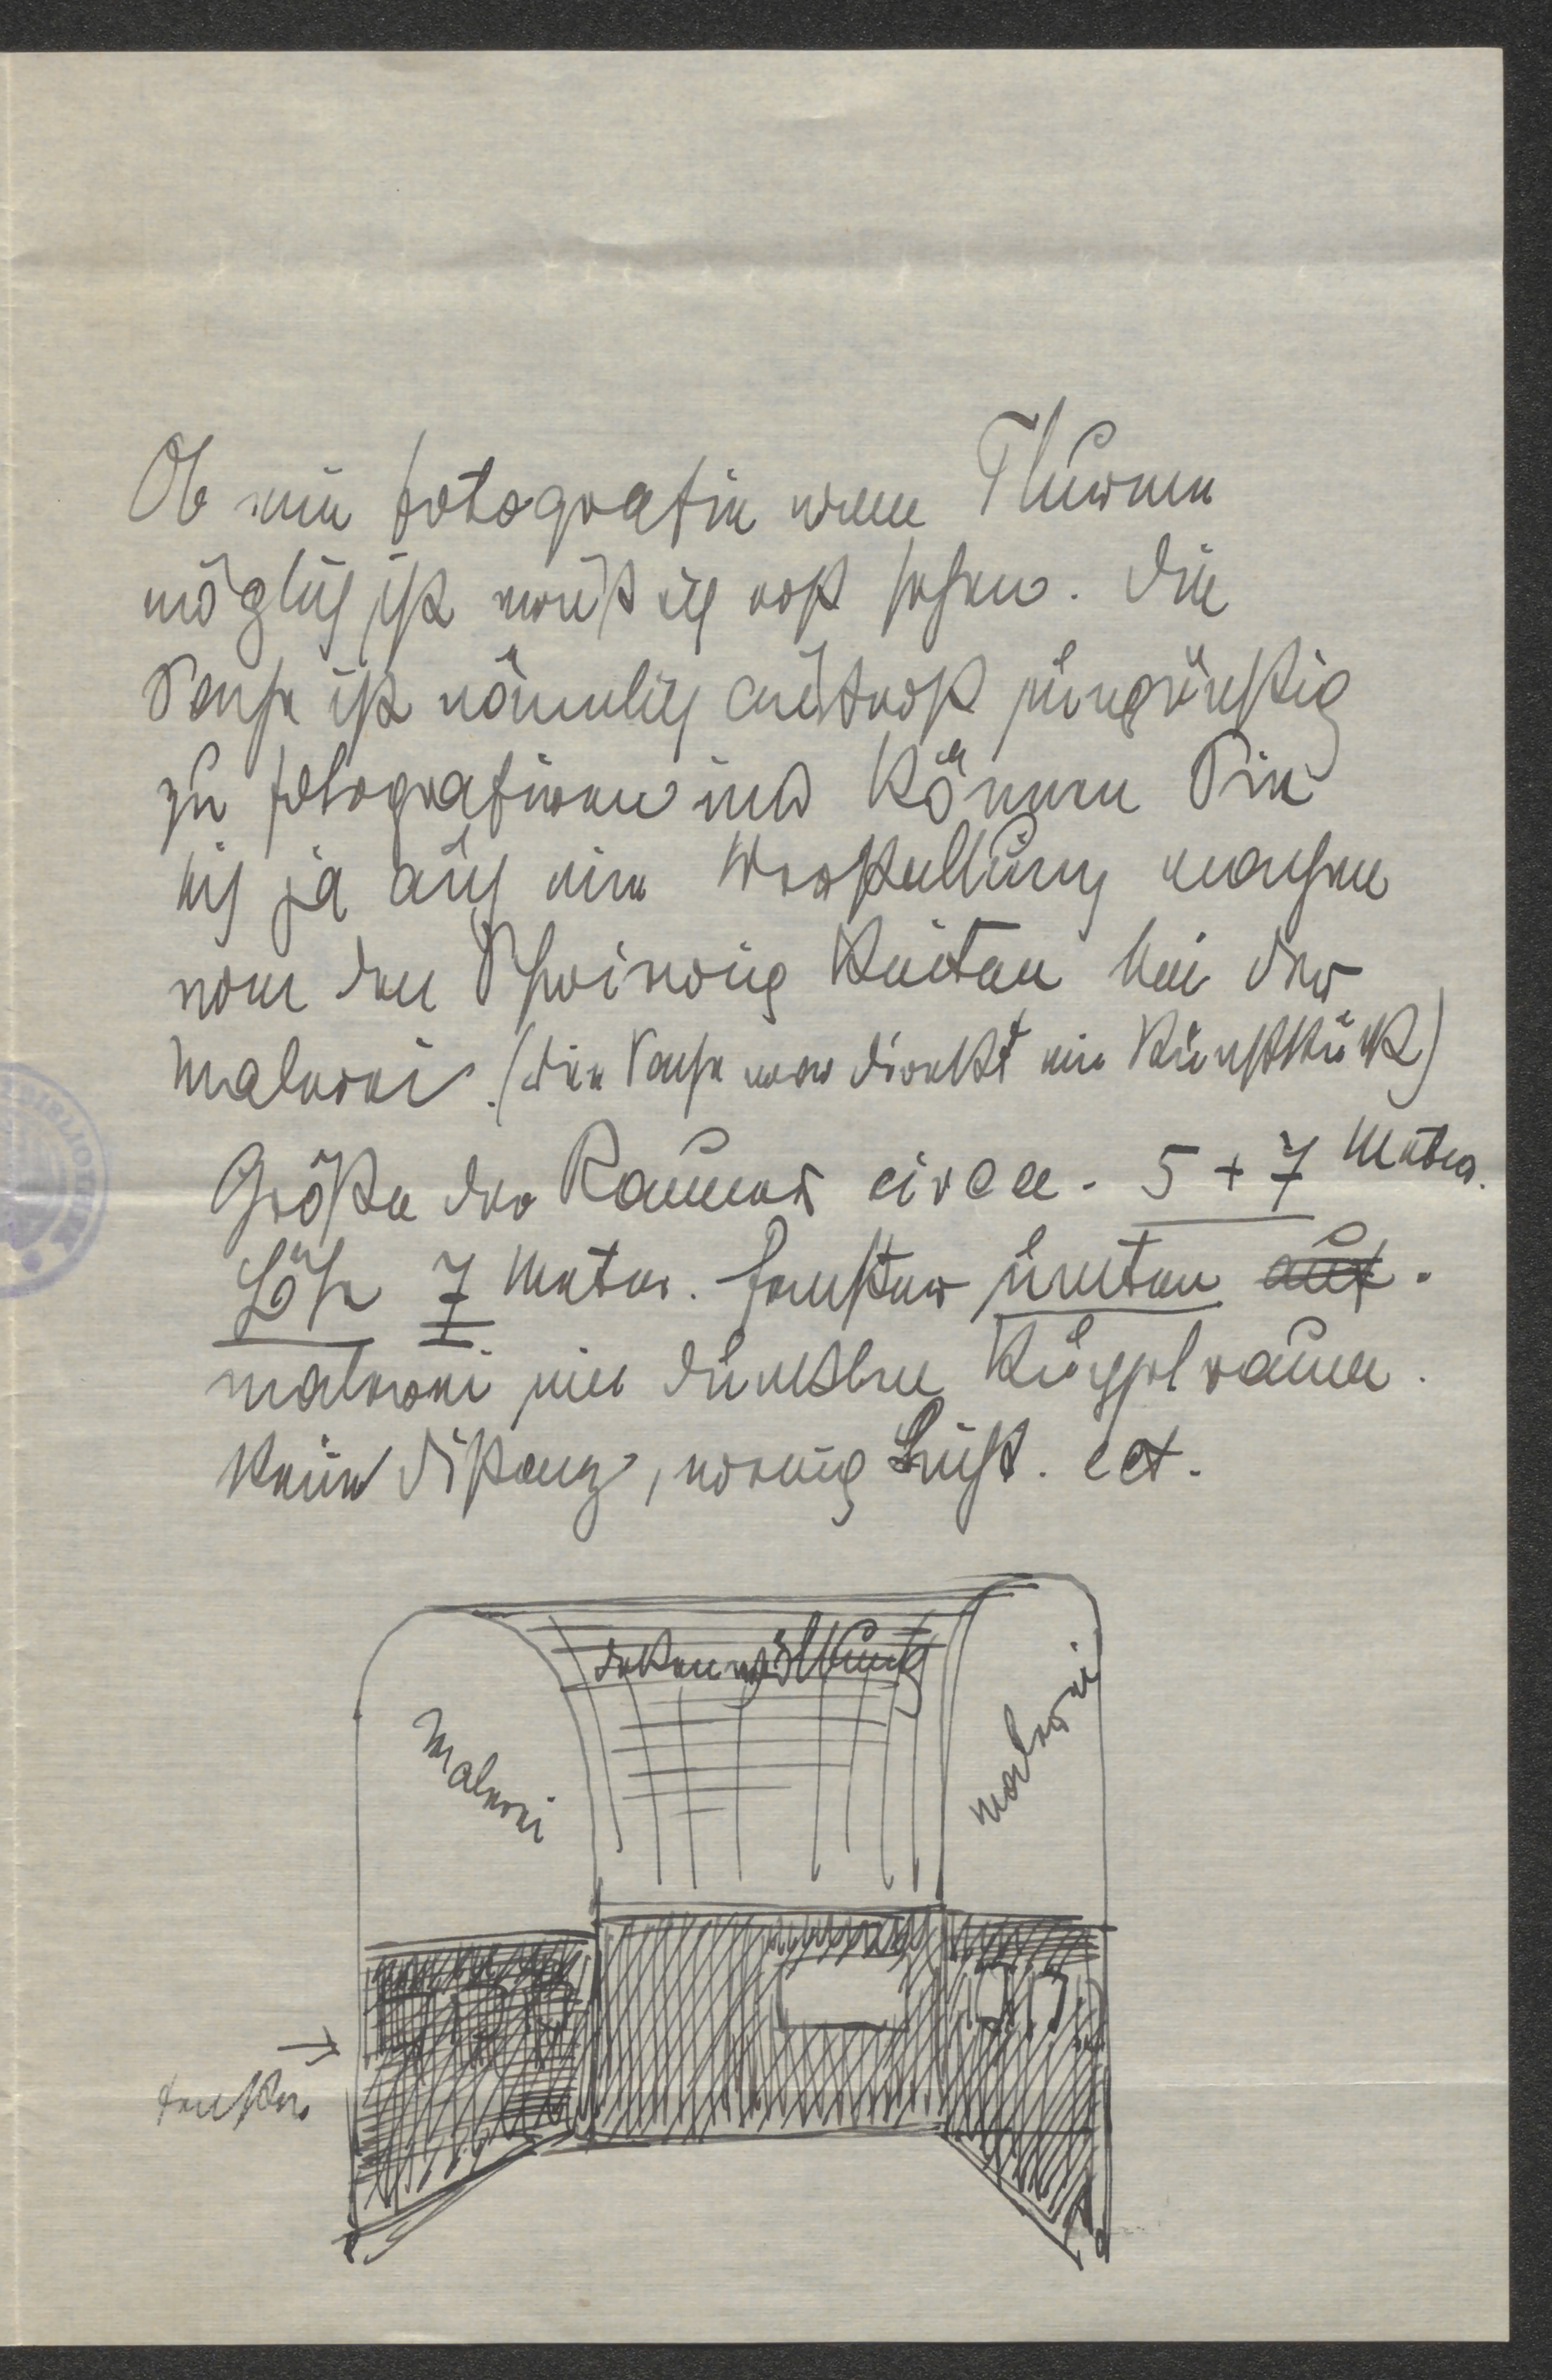 Ob eine fotografie vom Thurm
möglich ist muß ich erst sehen. die
Sache ist nämlich äußerst ungünstig
zu fotografieren und können Sie
sich ja auch eine Vorstellung machen
von den Schwierigkeiten bei der
malerei. (die Sache war direkt ein Kunststück)
Größe des Raumes circa. 5 + 7 Meter.
Höhe 7 Meter. fenster unten auf.
malerei im dunklen Kuppelraum.
Keine distanz, wenig Licht. ect.
dekenwölbung
Malerei
malerei
fenster
BIBLIOTHEK